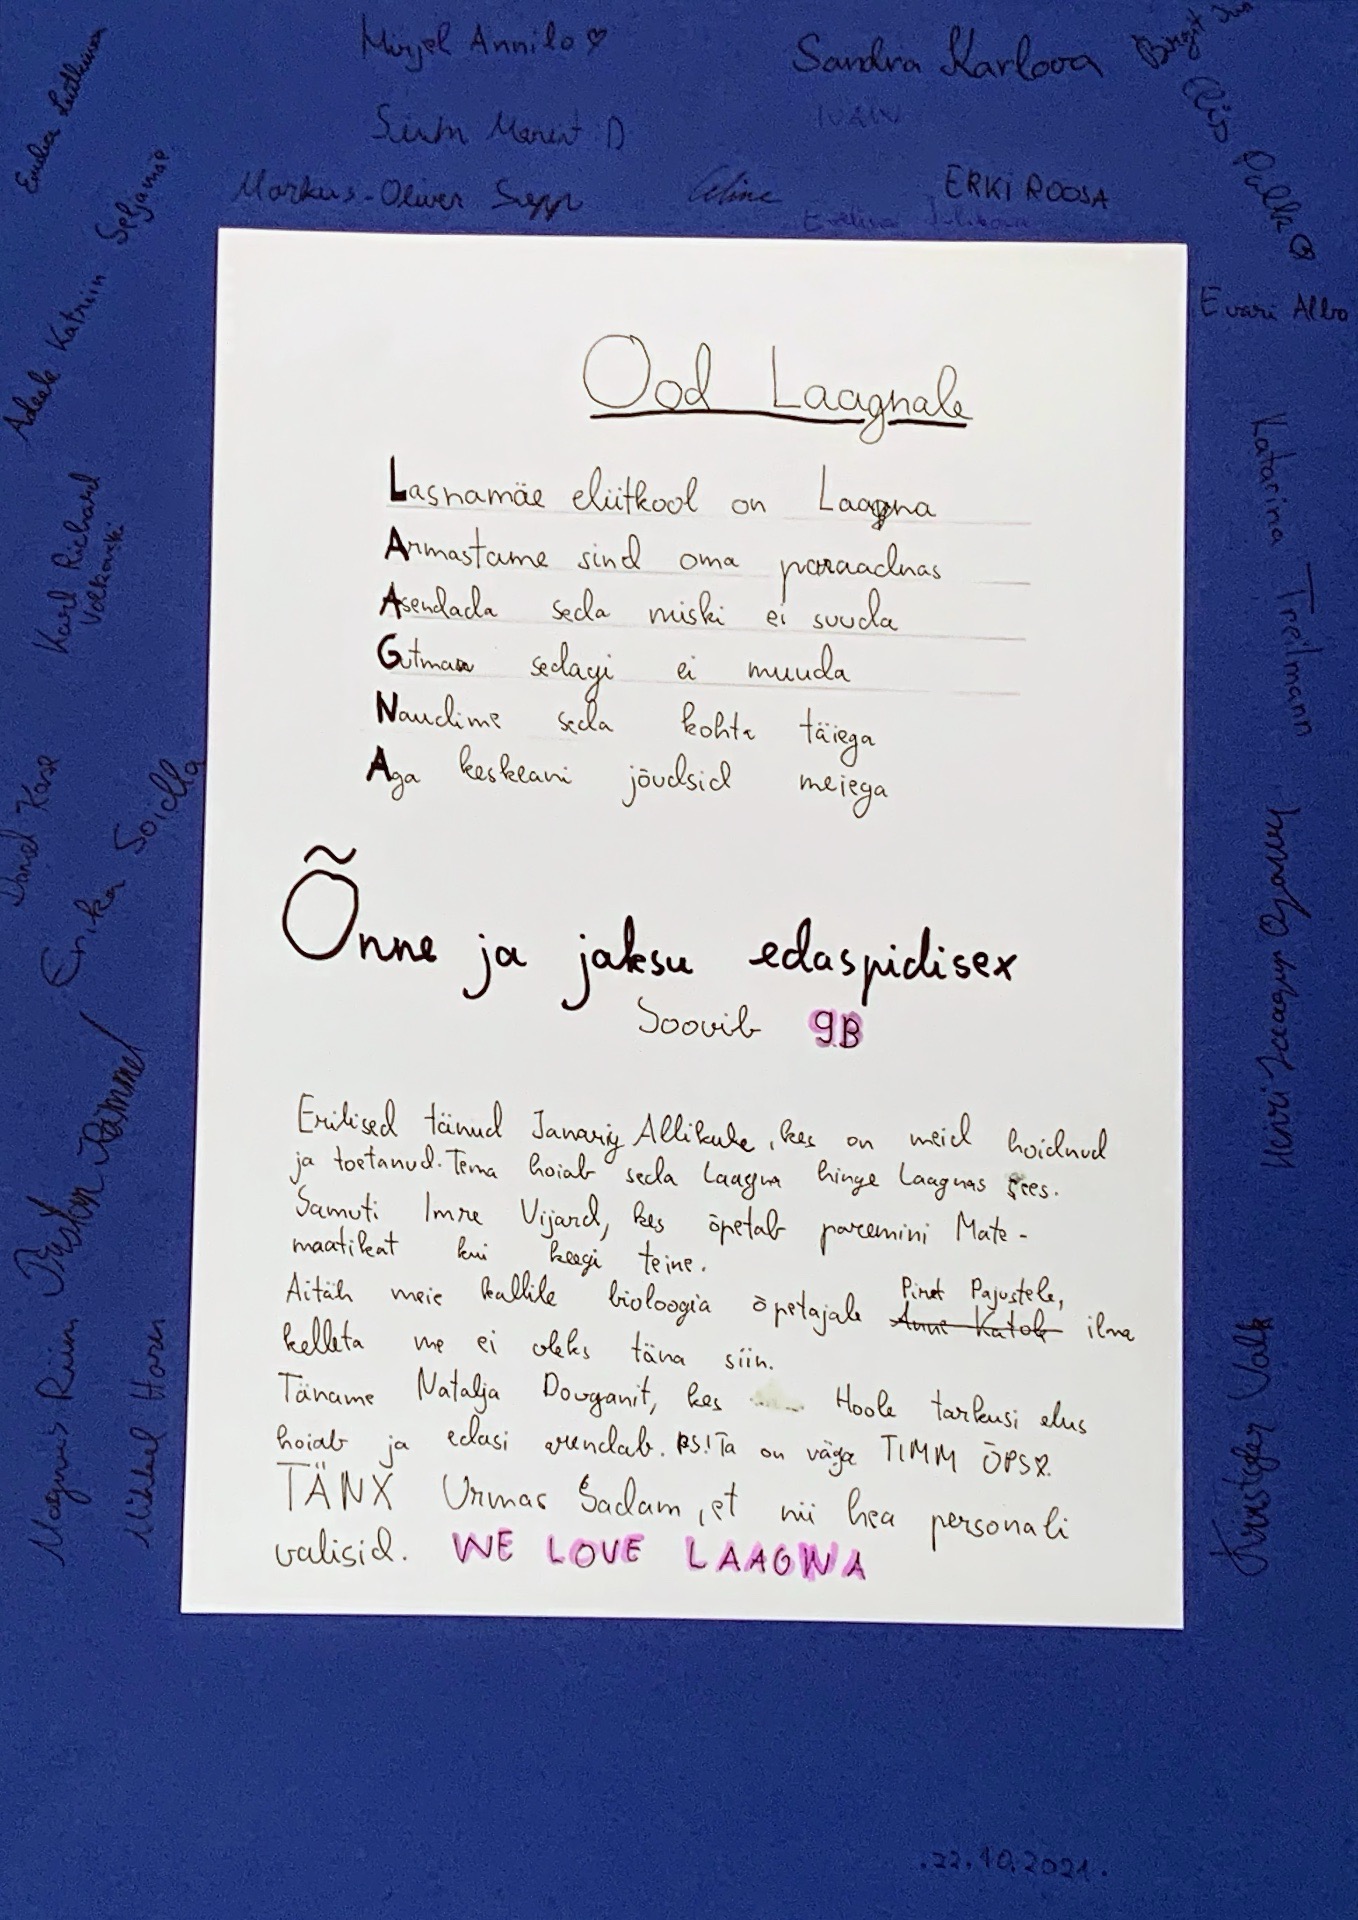 Mirjel Annilo ♡
Sandra Karlova
Birgit
IVAN
Markus-Oliver Sepp
Celine
ERKI ROOSA
Evelina
Evari Albo
Adeele Katriin Seljamäe
Karl Richard
Volkovski
Katarina Treilmann
Daniel Kase
Erika Soidla
Henri Jaagup
Preston Rämmel
Magnus Riim
Mihkel Horn
Kristofer Valk
Ood Laagnale
Lasnamäe eliitkool on Laagna
Armastame sind oma paraadnas
Asendada seda miski ei suuda
Gutman sedagi ei muuda
Naudime seda kohta täiega
Aga keskeani jõudsid meiega
Õnne ja jaksu edaspidisex
Soovib 9B
Erilised tänud Janariy Allikule, kes on meid hoidnud
ja toetanud. Tema hoiab seda Laagna hinge Laagnas sees.
Samuti Imre Vijard, kes õpetab paremini Mate-
maatikat kui keegi teine.
Aitäh meie kallile bioloogia õpetajale Piret Pajustele, ilma
kelleta me ei oleks täna siin.
Täname Natalja Dovganit, kes Hoole tarkusi elus
hoiab ja edasi arendab. PS! Ta on väga TIMM ÕPSX
TÄNX Urmas Sadam, et nii hea personali
valisid. WE LOVE LAAGNA
.22.10.2021.